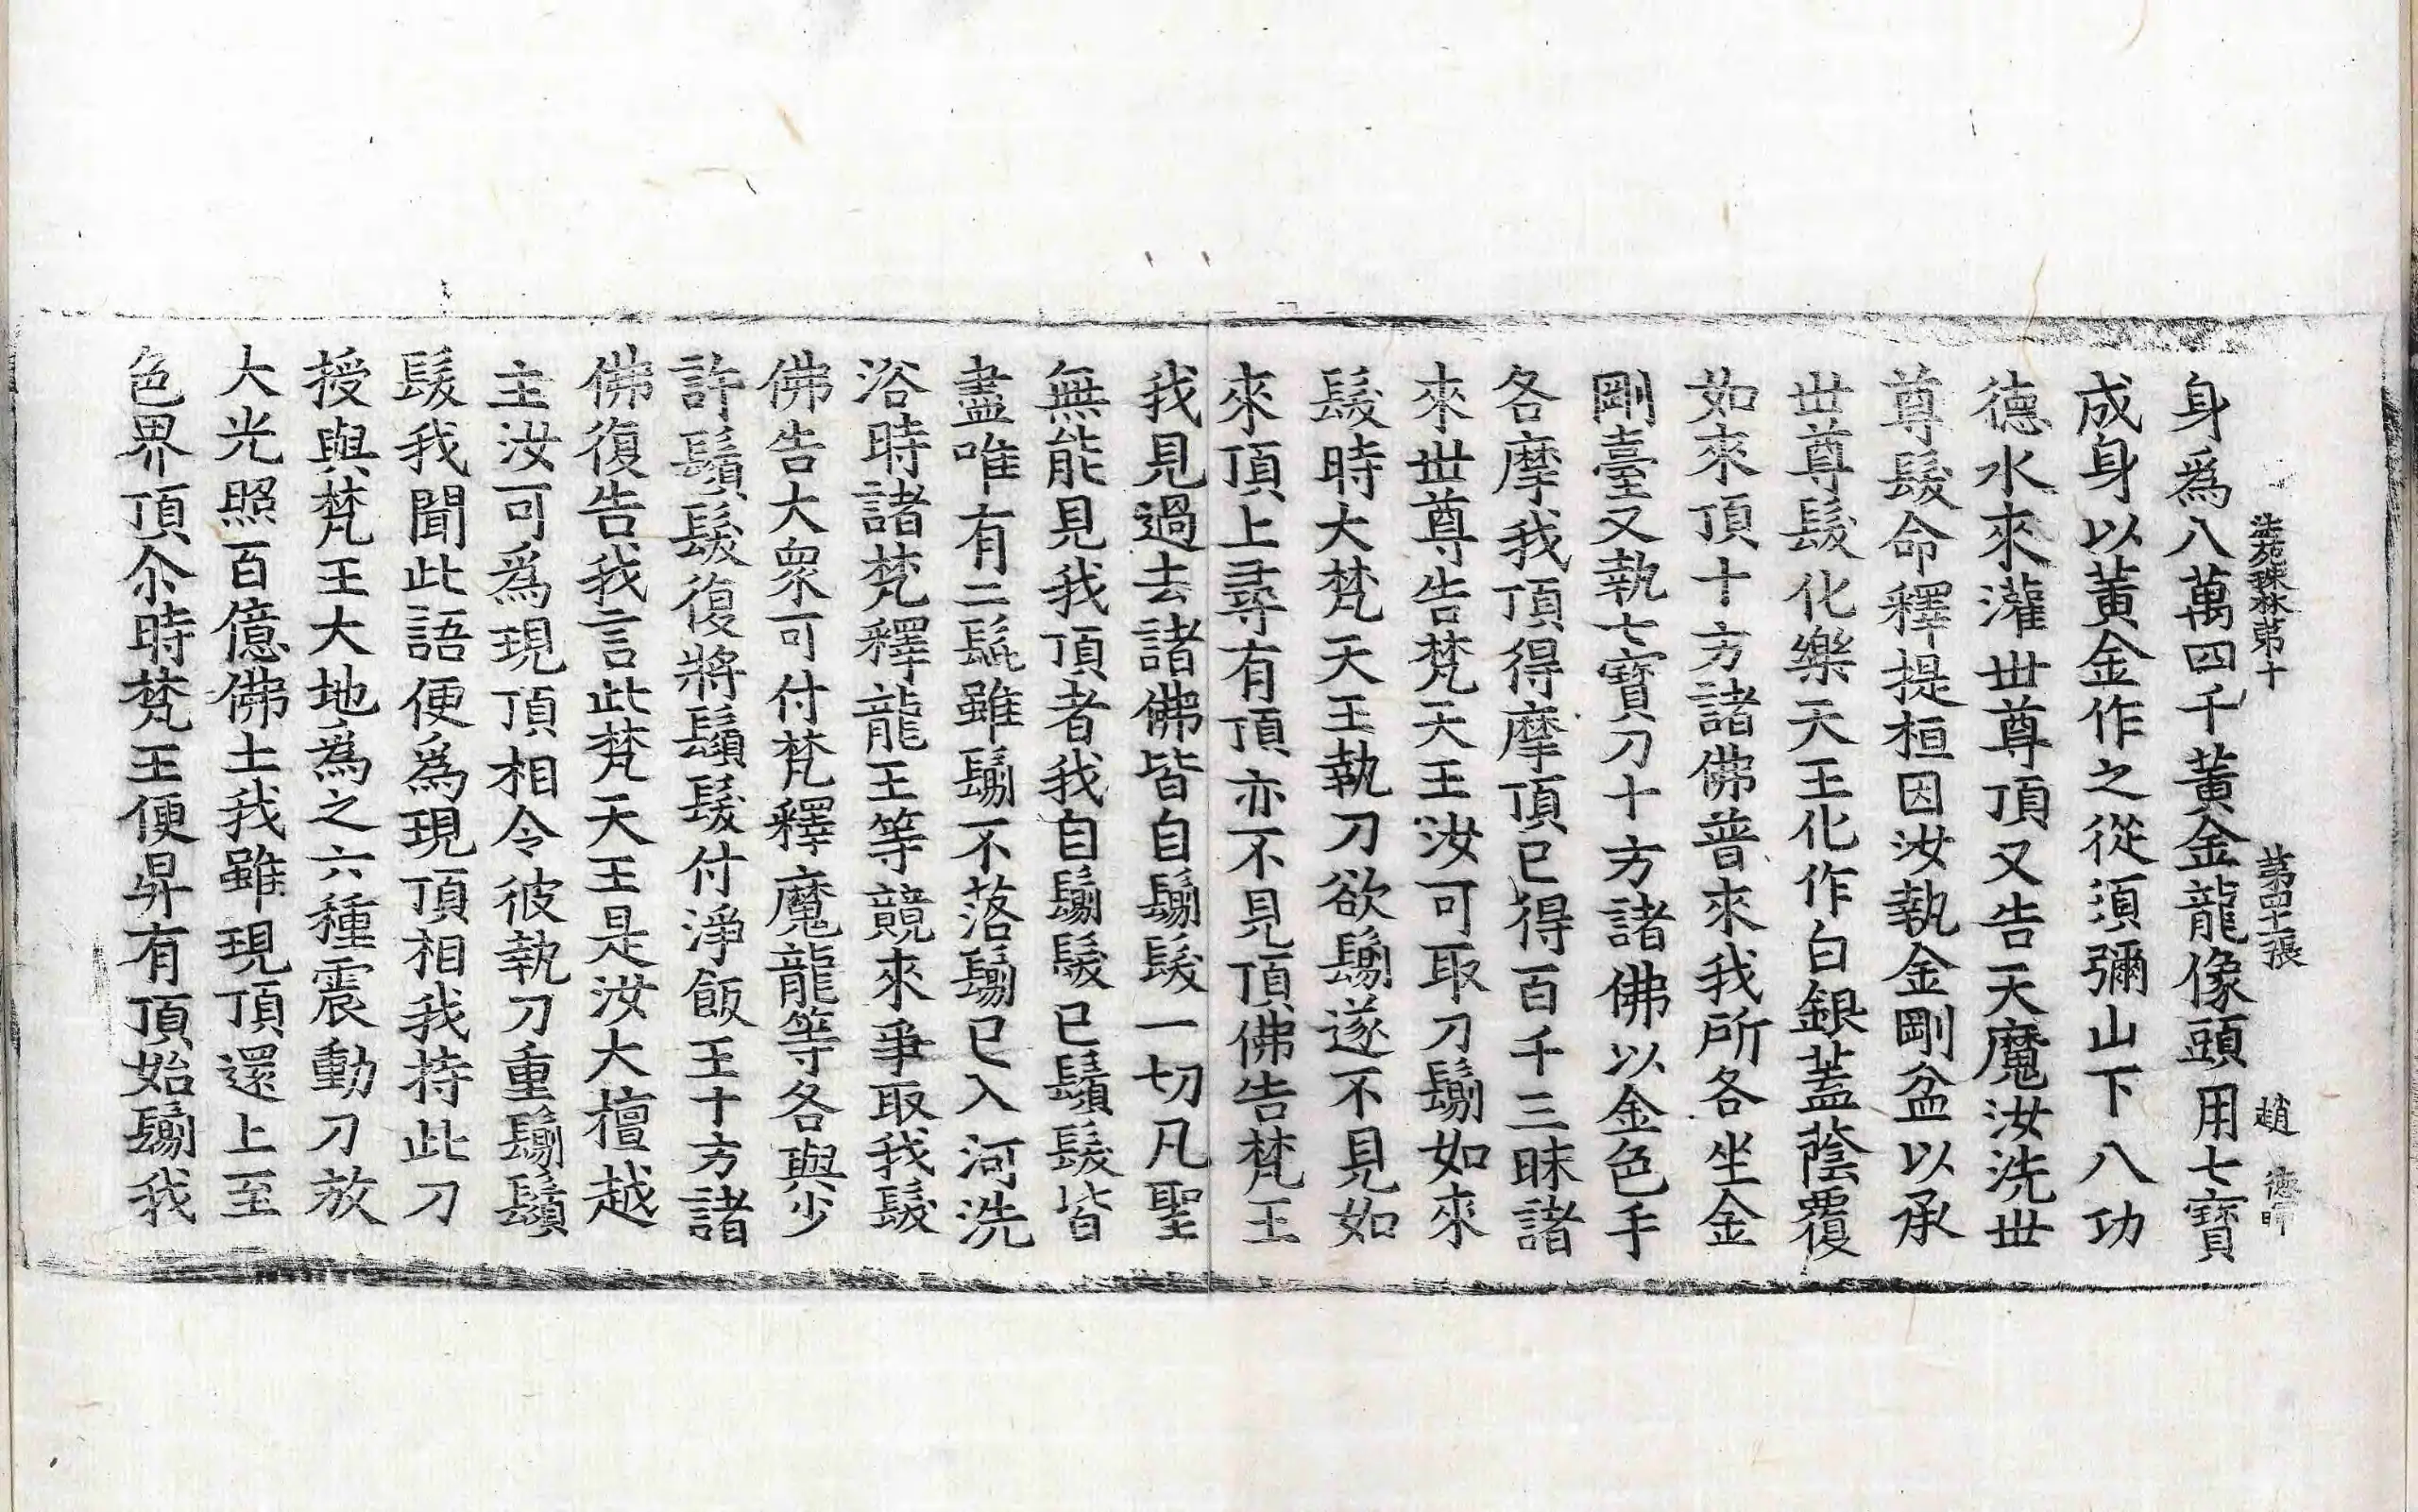 法苑珠林第十 第四十二張 趙 德
身爲八萬四千黃金龍像頭用七寶
成身以黃金作之從須彌山下八功
德水來灌世尊頂又告天魔汝洗世
尊髮命釋提桓因汝執金剛盆以承
世尊髮化樂天王化作白銀蓋蔭覆
如來頂十方諸佛普來我所各坐金
剛臺又執七寶刀十方諸佛以金色手
各摩我頂得摩頂已得百千三昧諸
來世尊告梵天王汝可取刀鬀如來
髮時大梵天王執刀欲鬀遂不見如
來頂上尋有頂亦不見頂佛告梵王
我見過去諸佛皆自鬀髮一切凡聖
無能見我頂者我自鬀髮已鬚髮皆
盡唯有二髭雖鬀不落鬀已入河洗
浴時諸梵釋龍王等競來爭取我髮
佛告大衆可付梵釋魔龍等各與少
許鬚髮復將鬚髮付淨飯王十方諸
佛復告我言此梵天王是汝大檀越
主汝可爲現頂相令彼執刀重鬀鬚
髮我聞此語便爲現頂相我持此刀
授與梵王大地爲之六種震動刀放
大光照百億佛土我雖現頂還上至
色界頂尒時梵王便昇有頂始鬀我